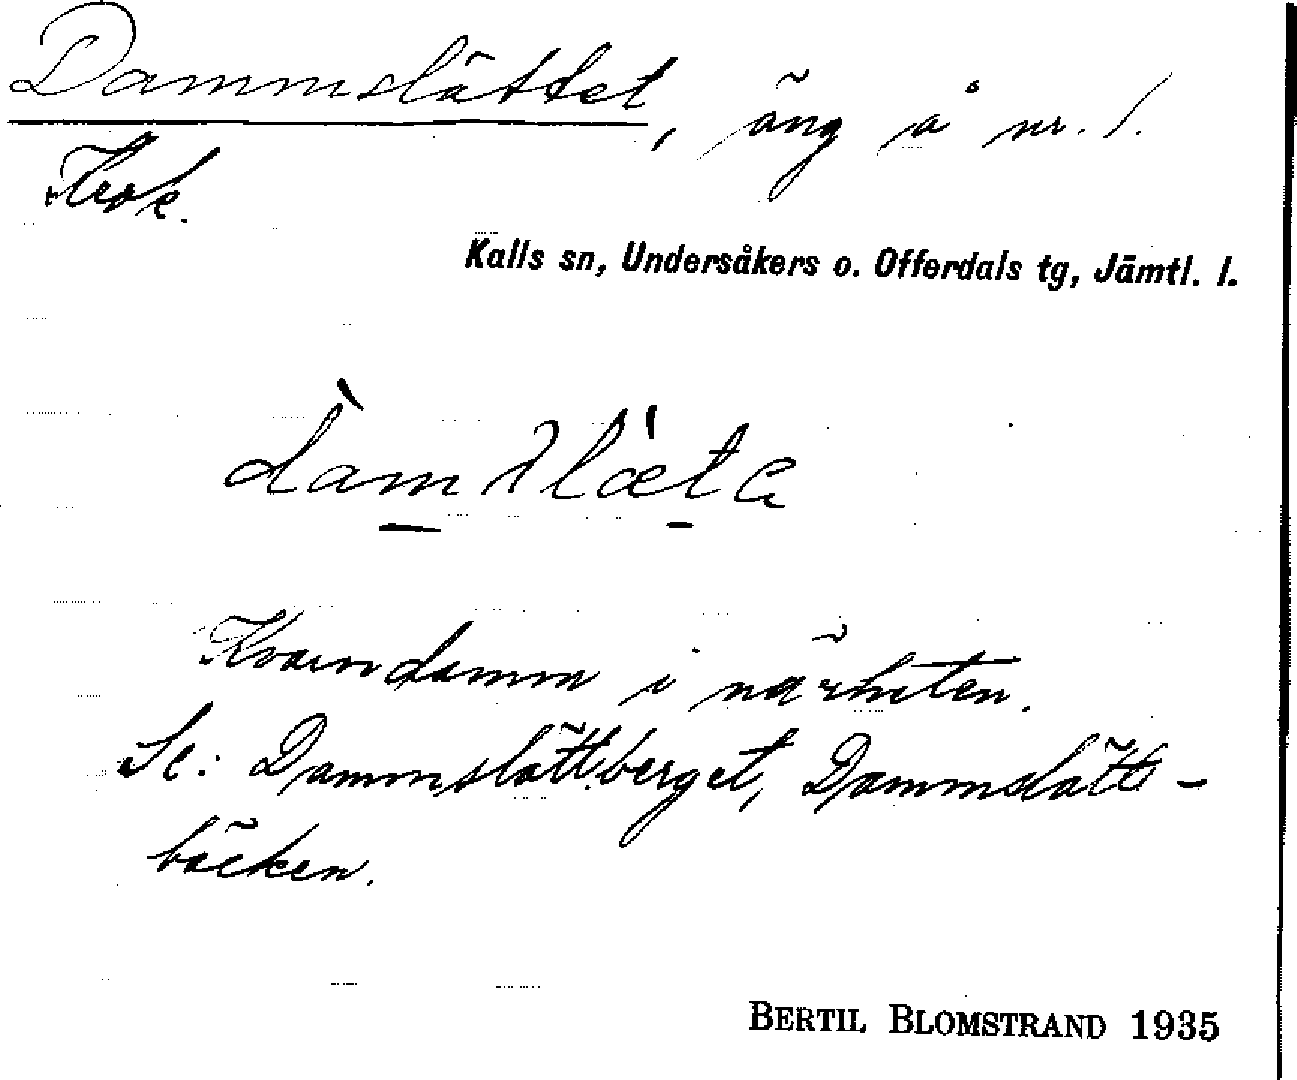 Dammslättet, äng å nr. 1.
Krok.
Kalls sn, Undersåkers o. Offerdals tg, Jämtl. l.
Kvarndamm i närheten.
Se: Dammslättberget, Dammslätt-
bäcken.
BERTIL BLOMSTRAND 1935